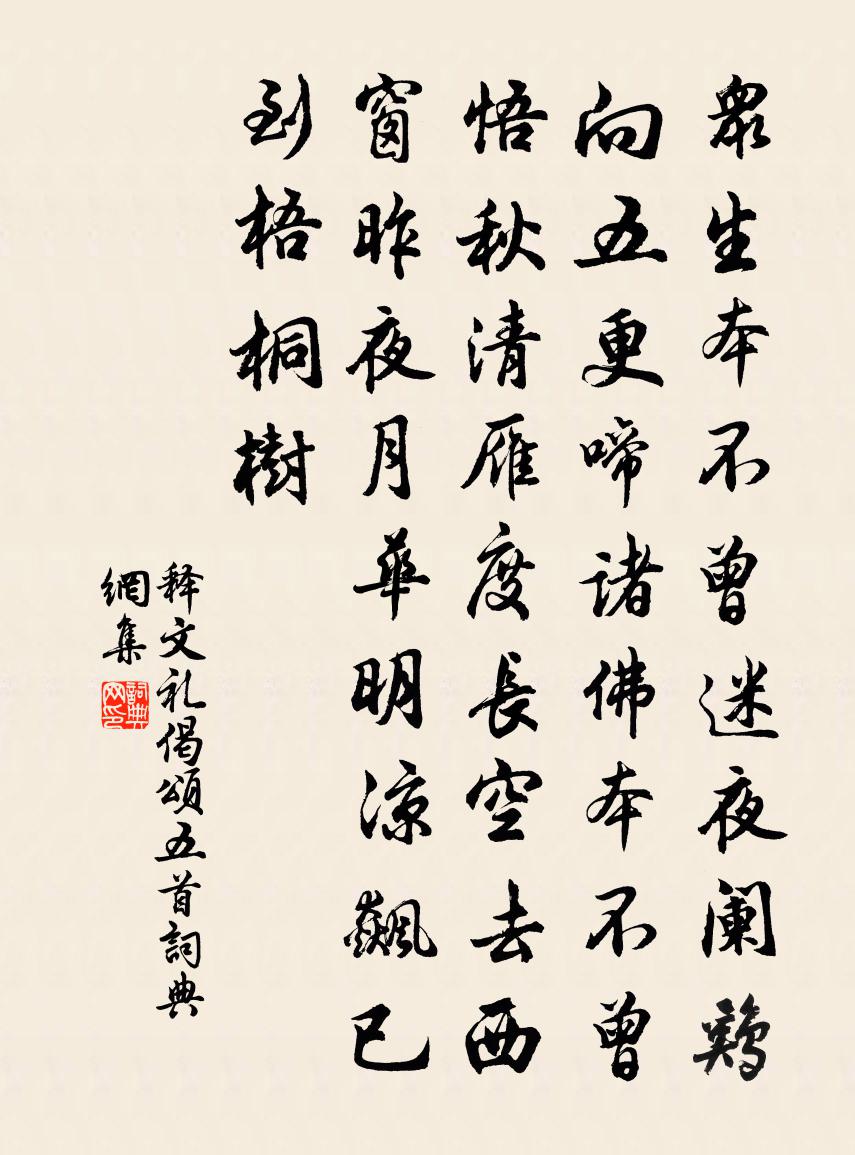 眾生本不曾迷夜阑鷄
向五更啼諸佛本不曾
悟秋清雁度長空去西
窗昨夜月華明凉飆已
到梧桐樹
释文礼偈頌五首詞典
網集
詞典
网印